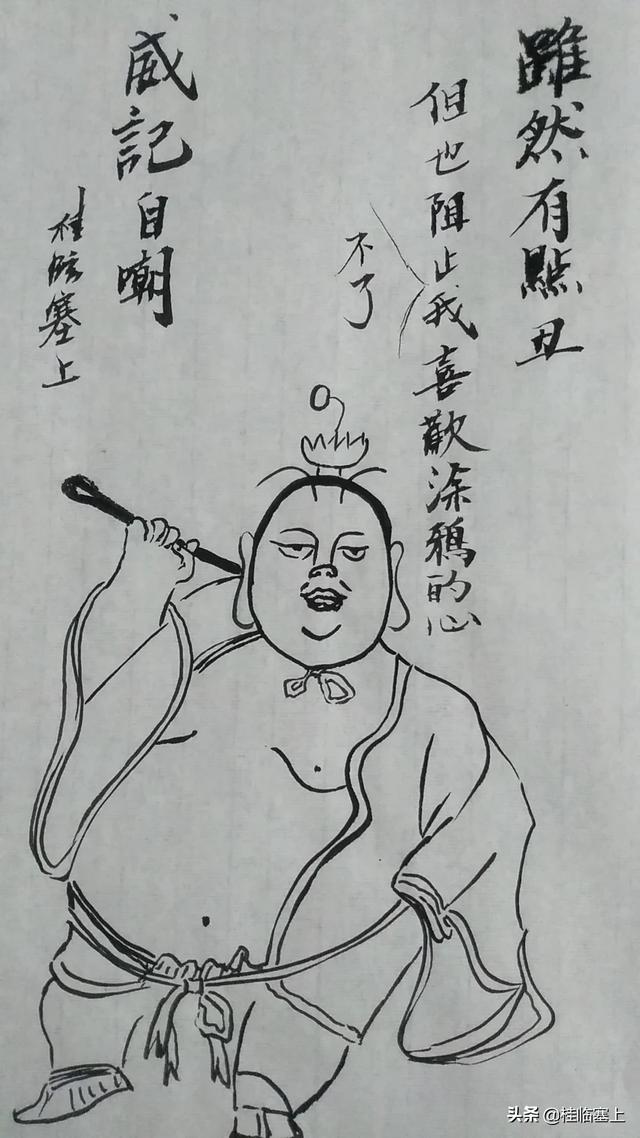 雖然有點丑
但也阻止我喜歡涂鴉的心
不了
威記自嘲
桂临塞上
头条 @桂临塞上